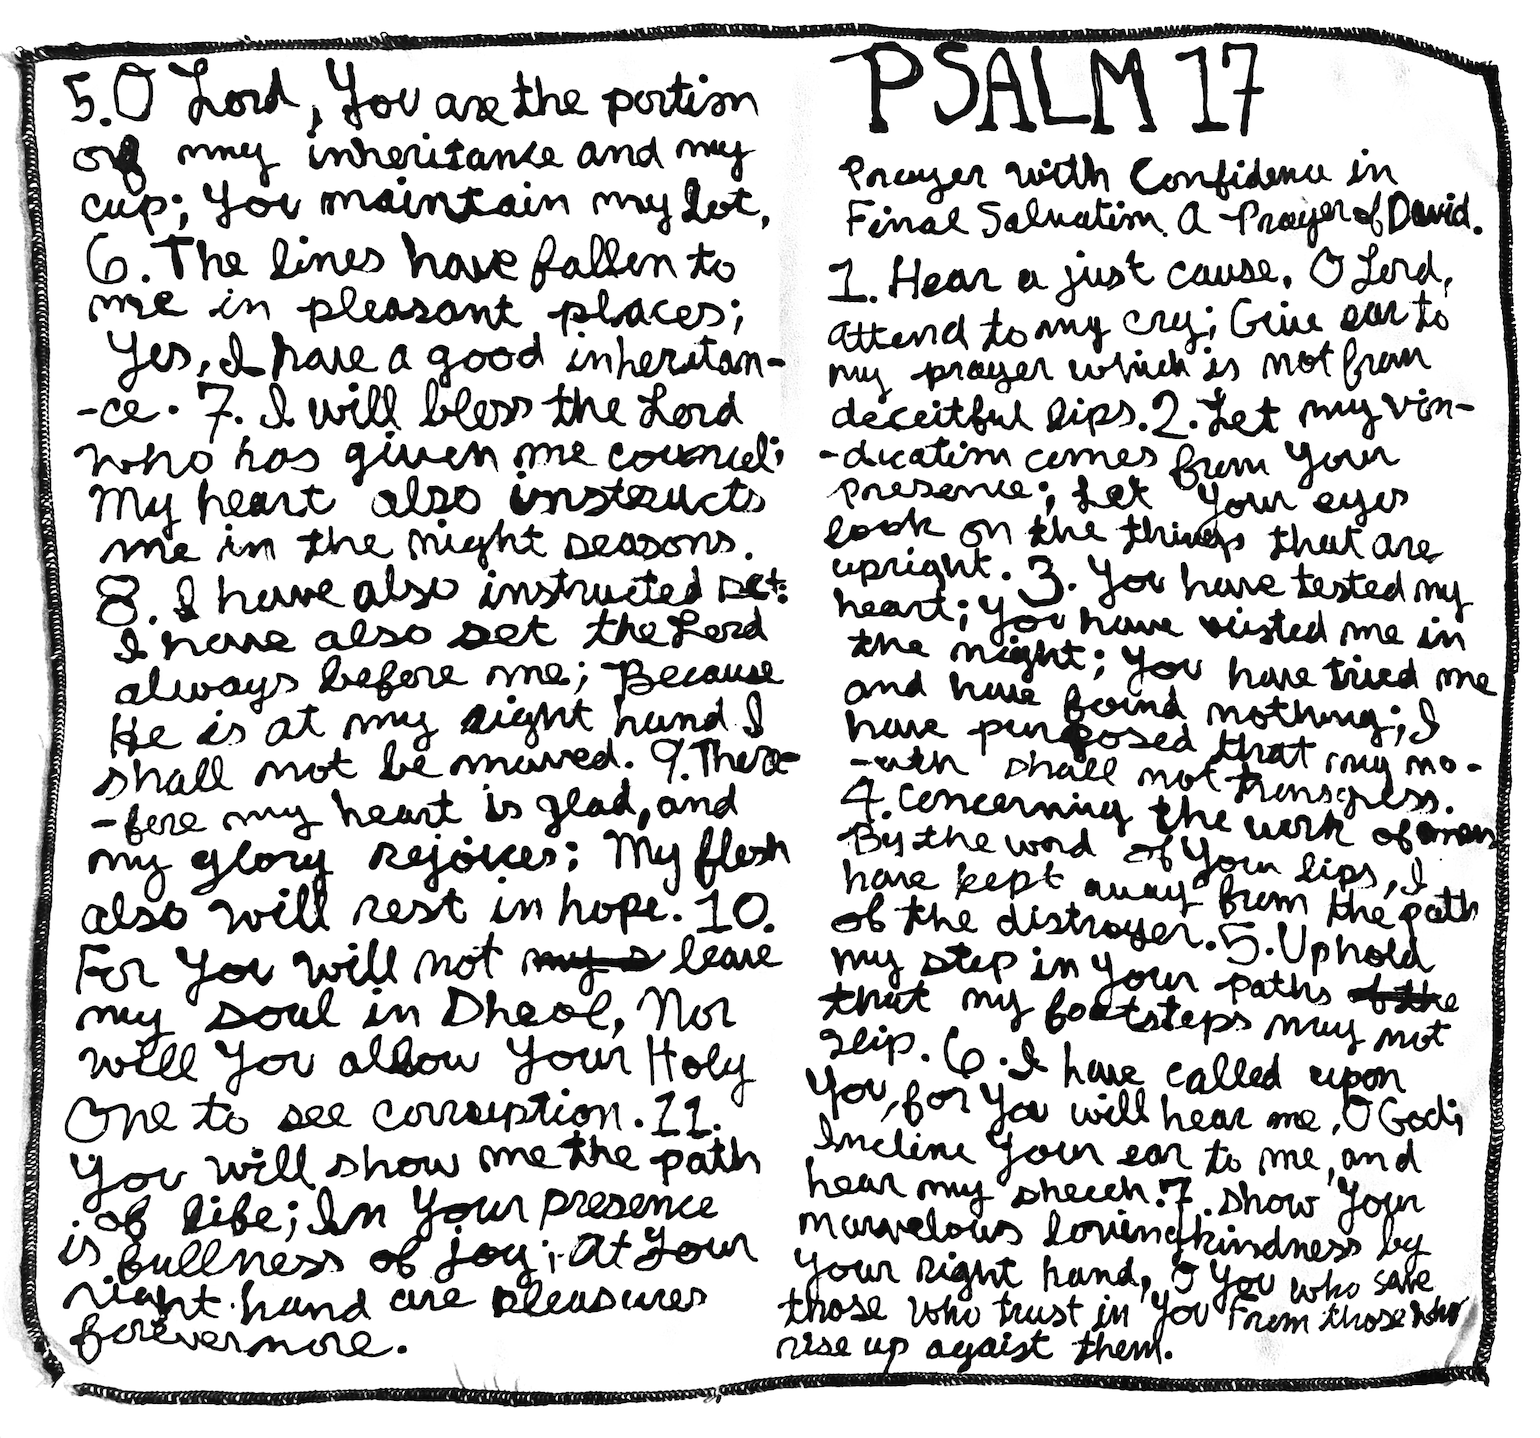 5. O Lord, You are the portion
of my inheritance and my
cup; You maintain my lot,
6. The lines have fallen to
me in pleasant places;
Yes, I have a good inheritan-
-ce. 7. I will bless the Lord
who has given me council;
My heart also instructs
me in the night seasons.
8. I have also instructed set:
I have also set the Lord
always before me; Because
He is at my right hand I
shall not be moved. 9. There-
-fore my heart is glad, and
my glory rejoices; My flesh
also will rest in hope. 10.
For You will not my s leave
my soul in Sheol, Nor
will You allow Your Holy
One to see corruption. 11.
You will show me the path
of life; In Your presence
is fullness of joy; At Your
right hand are pleasures
forevermore.
PSALM 17
Prayer with Confidence in
Final Salvation. A Prayer of David.
1. Hear a just cause, O Lord,
attend to my cry; Give ear to
my prayer which is not from
deceitful lips. 2. Let my vin-
-dication comes from Your
presence; Let Your eyes
look on the things that are
upright. 3. You have tested my
heart; You have visited me in
the night; You have tried me
and have found nothing; I
have purposed that my mo-
-uth shall not transgress.
4. Concerning the work of men
By the word of Your lips, I
have kept away from the path
of the distroyer. 5. Uphold
my step in Your paths of the
that my footsteps may not
slip. 6. I have called upon
You, for You will hear me, O God;
Incline Your ear to me, and
hear my sheech. 7. show Your
marvelous lovingkindness by
Your right hand, O You who save
those who trust in You From those who
rise up agaist them.